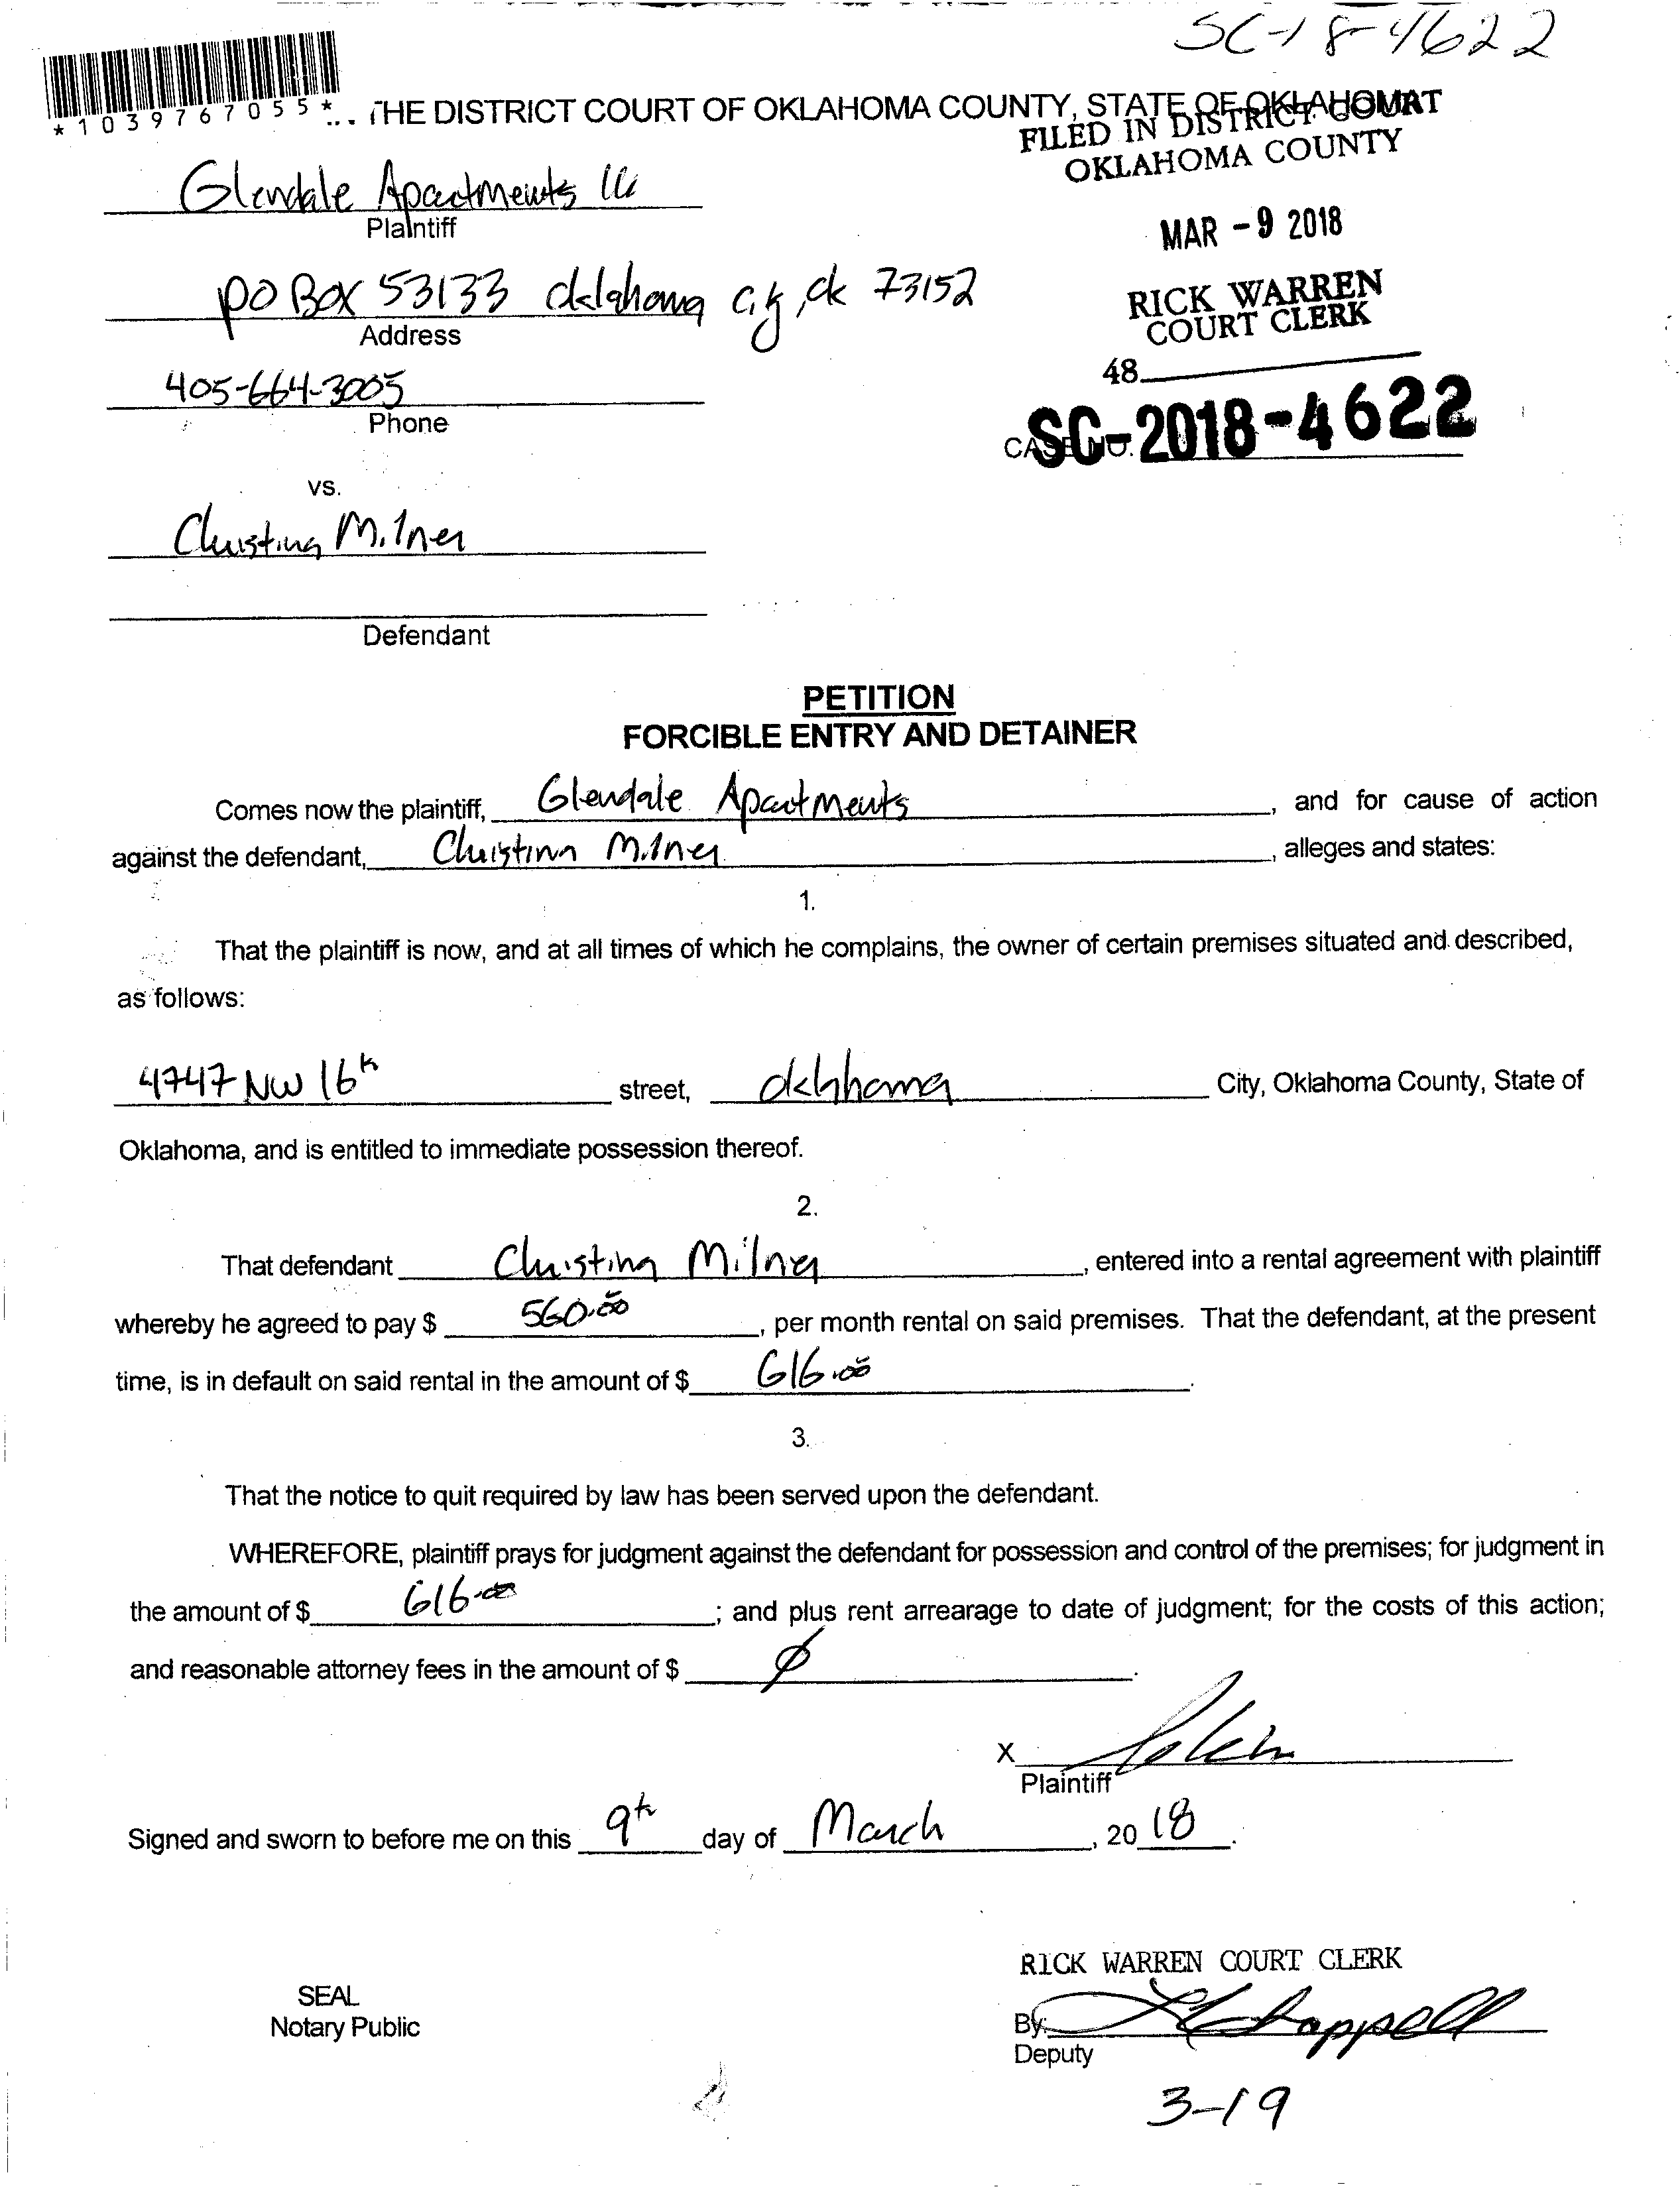 SC-18-4622
*1039767055*
THE DISTRICT COURT OF OKLAHOMA COUNTY, STATE OF OKLAHOMA
FILED IN DISTRICT COURT
OKLAHOMA COUNTY
Glendale Apartments llc
Plaintiff
MAR -9 2018
PO Box 53133 oklahoma city, ok 73152
Address
RICK WARREN
COURT CLERK
405-664-3005
Phone
48
CASE NO.
SC-2018-4622
vs.
Christina Milner
Defendant
PETITION
FORCIBLE ENTRY AND DETAINER
Comes now the plaintiff, Glendale Apartments, and for cause of action
against the defendant, Christina Milner, alleges and states:
1.
That the plaintiff is now, and at all times of which he complains, the owner of certain premises situated and described,
as follows:
4747 NW 16th street, oklahoma City, Oklahoma County, State of
Oklahoma, and is entitled to immediate possession thereof.
2.
That defendant Christina Milner, entered into a rental agreement with plaintiff
whereby he agreed to pay $ 560.00, per month rental on said premises. That the defendant, at the present
time, is in default on said rental in the amount of $ 616.00.
3.
That the notice to quit required by law has been served upon the defendant.
WHEREFORE, plaintiff prays for judgment against the defendant for possession and control of the premises; for judgment in
the amount of $ 616.00; and plus rent arrearage to date of judgment; for the costs of this action;
and reasonable attorney fees in the amount of $ ∅.
X
Plaintiff
Signed and sworn to before me on this 9th day of March, 2018.
RICK WARREN COURT CLERK
SEAL
Notary Public
By:
Deputy
3-19